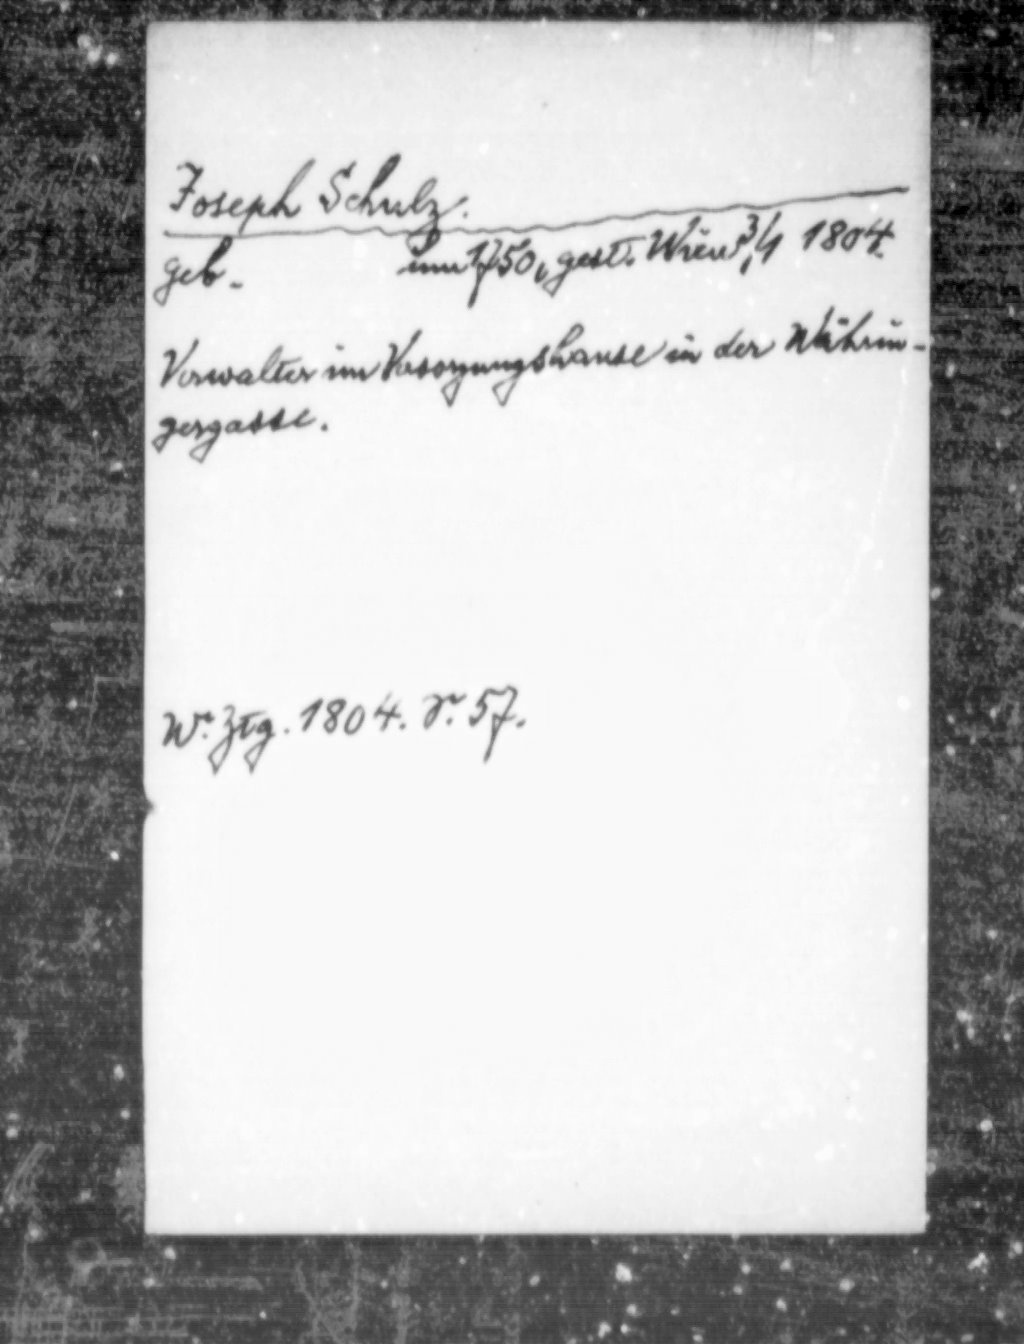 Joseph Schulz.
geb. um 1750, gest. Wien 3/4 1804.
Verwalter im Vesorgungshause in der Währin-
gergasse.
Wr. Ztg. 1804. Nr. 57.